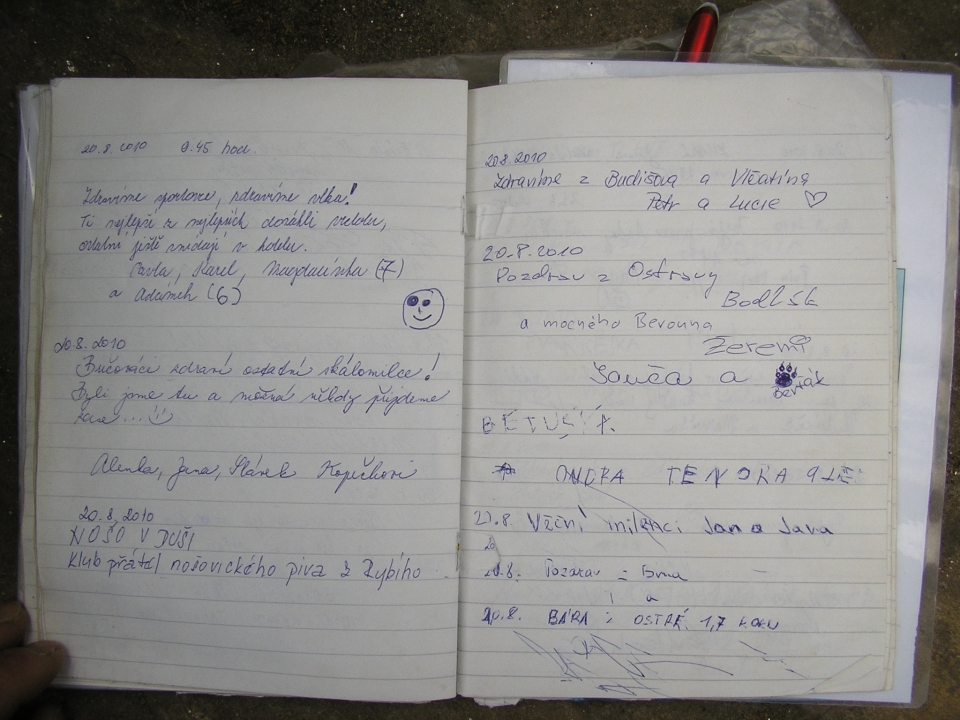 20.8.2010 9.45 hod.
Zdravíme sportovce, zdravíme vlka!
Ti nejlepší z nejlepších dosáhli vrcholu,
ostatní ještě snídají v hotelu.
Pavla, Karel, Magdalénka (7)
a Adámek (6)
20.8.2010
zdraví ostatní skálomilce!
Byli jsme tu a možná někdy přijdeme
zase...
Alenka, Jana, Márek Kopečkovi
20.8.2010
NOŠO V DUŠI
Klub přátel nošovického piva z Rybího
20.8.2010
Zdravíme z Budišova a Včatína
Petr a Lucie
20.8.2010
Pozdrav z Ostravy
a mocného Berouna
Zeremi
Souča a
BETUŠKA
ONDRA 9 LET
20.8. Věční milenci Jana a Jarda
20.8. Pozdrav z Brna
a
20.8. BÁRA z OSTRÉ, 1,7 ROKU